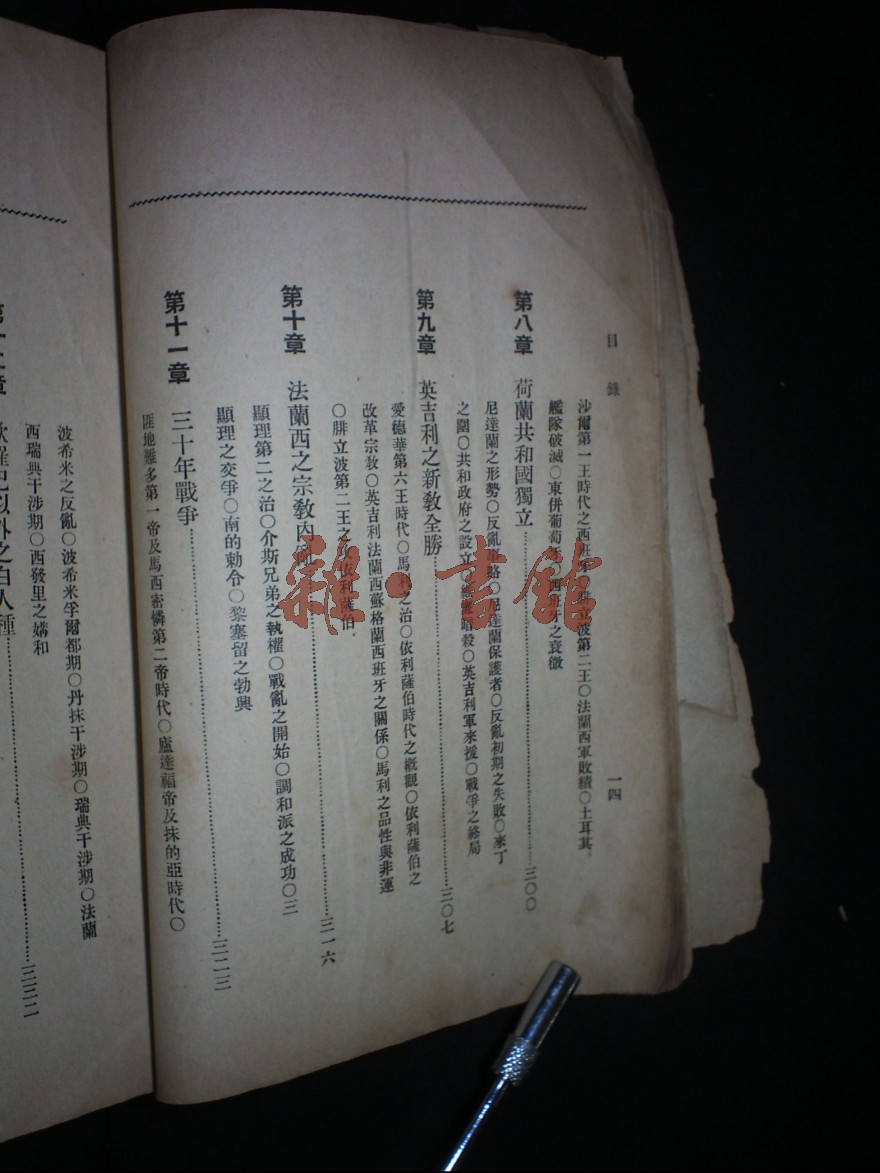 目錄 一四
沙爾第一王時代之西班牙○腓立波第二王○法蘭西軍敗績○土耳其、
艦隊破滅○東併葡萄牙○西班牙之衰微
第八章 荷蘭共和國獨立 三〇〇
尼達蘭之形勢○反亂 略○尼達蘭保護者○反亂初期之失敗○來丁
之圍○共和政府之設立 暗殺○英吉利軍來援○戰爭之終局
第九章 英吉利之新敎全勝 三〇七
愛德華第六王時代○馬利之治○依利薩伯時代之概觀○依利薩伯之
改革宗敎○英吉利法蘭西蘇格蘭西班牙之關係○馬利之品性與非運
○腓立波第二王之 依利薩伯
第十章 法蘭西之宗敎內亂 三一六
顯理第二之治○介斯兄弟之執權○戰亂之開始○調和派之成功○三
顯理之交爭○南的勅令○黎塞留之勃興
第十一章 三十年戰爭 三二三
匪地難多第一帝及馬西密憐第二帝時代○盧達福帝及抹的亞時代○
波希米之反亂○波希米孚爾都期○丹抹干涉期○瑞典干涉期○法蘭
西瑞典干涉期○西發里之媾和
章 以外之白人種 三三二
雜·書館